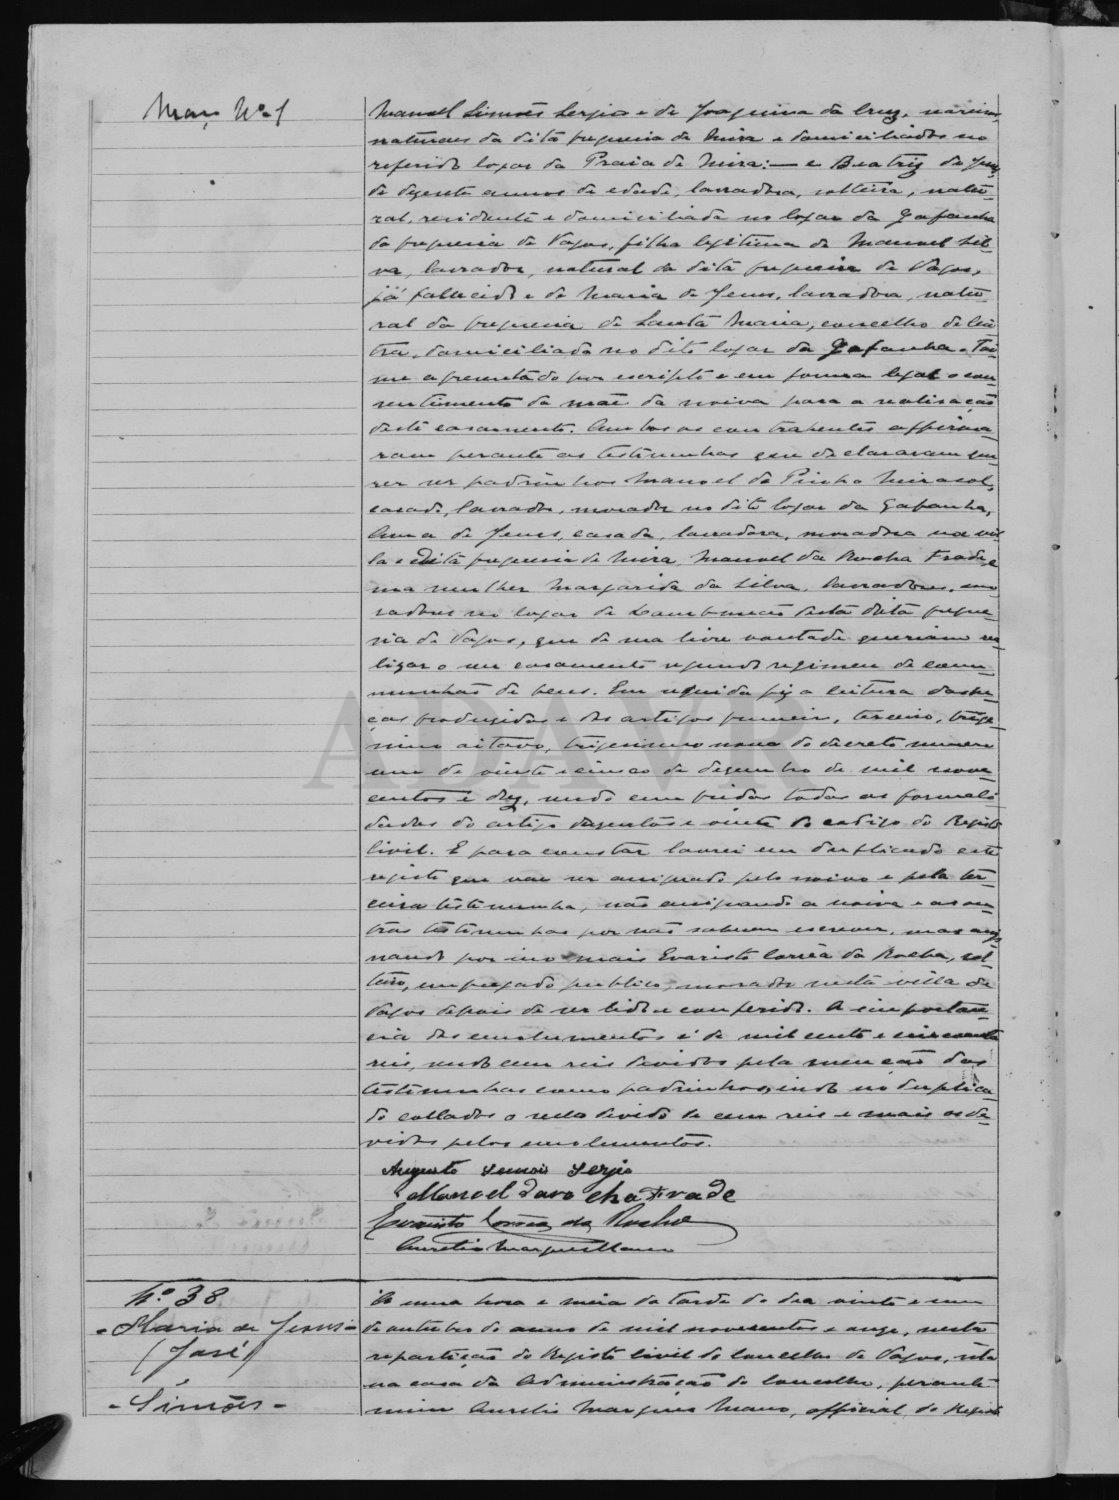 Maço Nº 1
Manoel Simões Sergio e de Joaquina da Cruz,
naturaes da dita freguesia de Mira e domiciliados no
referido logar da Praia de Mira: — e Beatriz de Jesus,
de dezenta annos de edade, lavradora, solteira, natu-
ral, residente e domiciliada no logar da Gafanha
da freguesia de Vagos, filha legitima de Manoel Sil-
va, lavrador, natural da dita freguesia de Vagos,
já fallecido e de Maria de Jesus, lavradora, natu-
ral da freguesia de Santa Maria, concelho de
domiciliada no dito logar da Gafanha. Foi-
me apresentado por escripto e em forma legal o con-
sentimento da mãe da noiva para a realisação
deste casamento. Ambos os contrahentes affirma-
ram perante as testimunhas que declararam que-
rer ser padrinhos Manoel de Pinho Mirasol,
casado, lavrador, morador no dito logar da Gafanha,
Anna de Jesus, casada, lavradora, moradora na vil-
la e dita freguesia de Mira, Manoel da Rocha Frade, e
sua mulher Margarida da Silva, lavradores, mo-
radores no logar de desta dita fregue-
sia de Vagos, que de sua livre vontade queriam rea-
lizar o seu casamento segundo regimen de com-
munhão de bens. Em seguida fiz a leitura das pe-
ças produzidas e dos artigos primeiro, terceiro, trige-
simo oitavo, trigesimo nono do decreto numero
um de vinte e cinco de dezembro de mil nove-
centos e dez, sendo cumpridas todas as formali-
dades do artigo duzentos e vinte do codigo do Registo
Civil. E para constar lavrei em duplicado este
registo que vae ser assignado pelo noivo e pela ter-
ceira testimunha, não assignando a noiva e as ou-
tras testimunhas por não saberem escrever, mas assi-
nando por isso mais Evaristo Corrêa da Rocha, sol-
teiro, empregado publico, morador nesta villa de
Vagos depois de ser lido e conferido. A importan-
cia dos emolumentos é de mil cento e cincoenta
reis, sendo cem reis devidos pela menção das
testimunhas como padrinhos, indo no duplica-
do collados o sello devido de cem reis e mais os de-
vidos pelos emolumentos.
Augusto Semois Serjio
Manoel da ro cha Frade
Evaristo Corrêa da Rocha
Aurelio Marques Mano
Nº 38
- Maria de Jesus -
(José)
- Simões -
A uma hora e meia da tarde do dia vinte e um
de outubro do anno de mil novecentos e onze, nesta
repartição do Registo Civil do Concelho de Vagos, sita
na casa da Administração do Concelho, perante
mim Aurelio Marques Mano, official do Registo
ADAVR